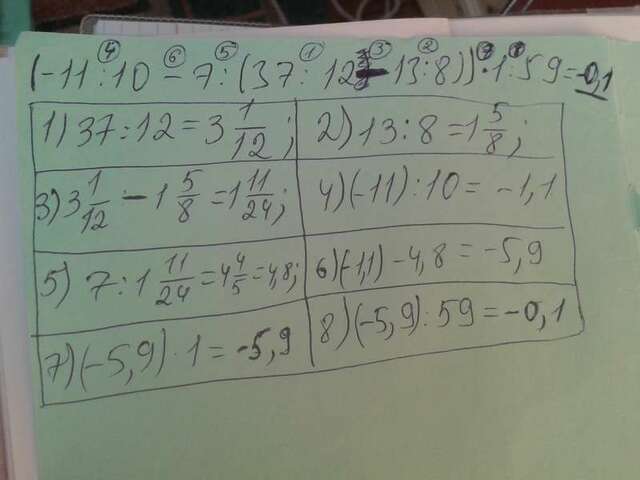 ④ ⑥ ⑤ ① ③ ② ⑦ ⑧
(-11:10-7:(37:12-13:8))·1:59=-0,1
1) 37:12=3 1/12;
2) 13:8=1 5/8;
3) 3 1/12 - 1 5/8 = 1 11/24;
4) (-11):10= -1,1
5) 7:1 11/24=4 4/5=4,8;
6) (-1,1)-4,8=-5,9
7) (-5,9)·1=-5,9
8) (-5,9):59=-0,1